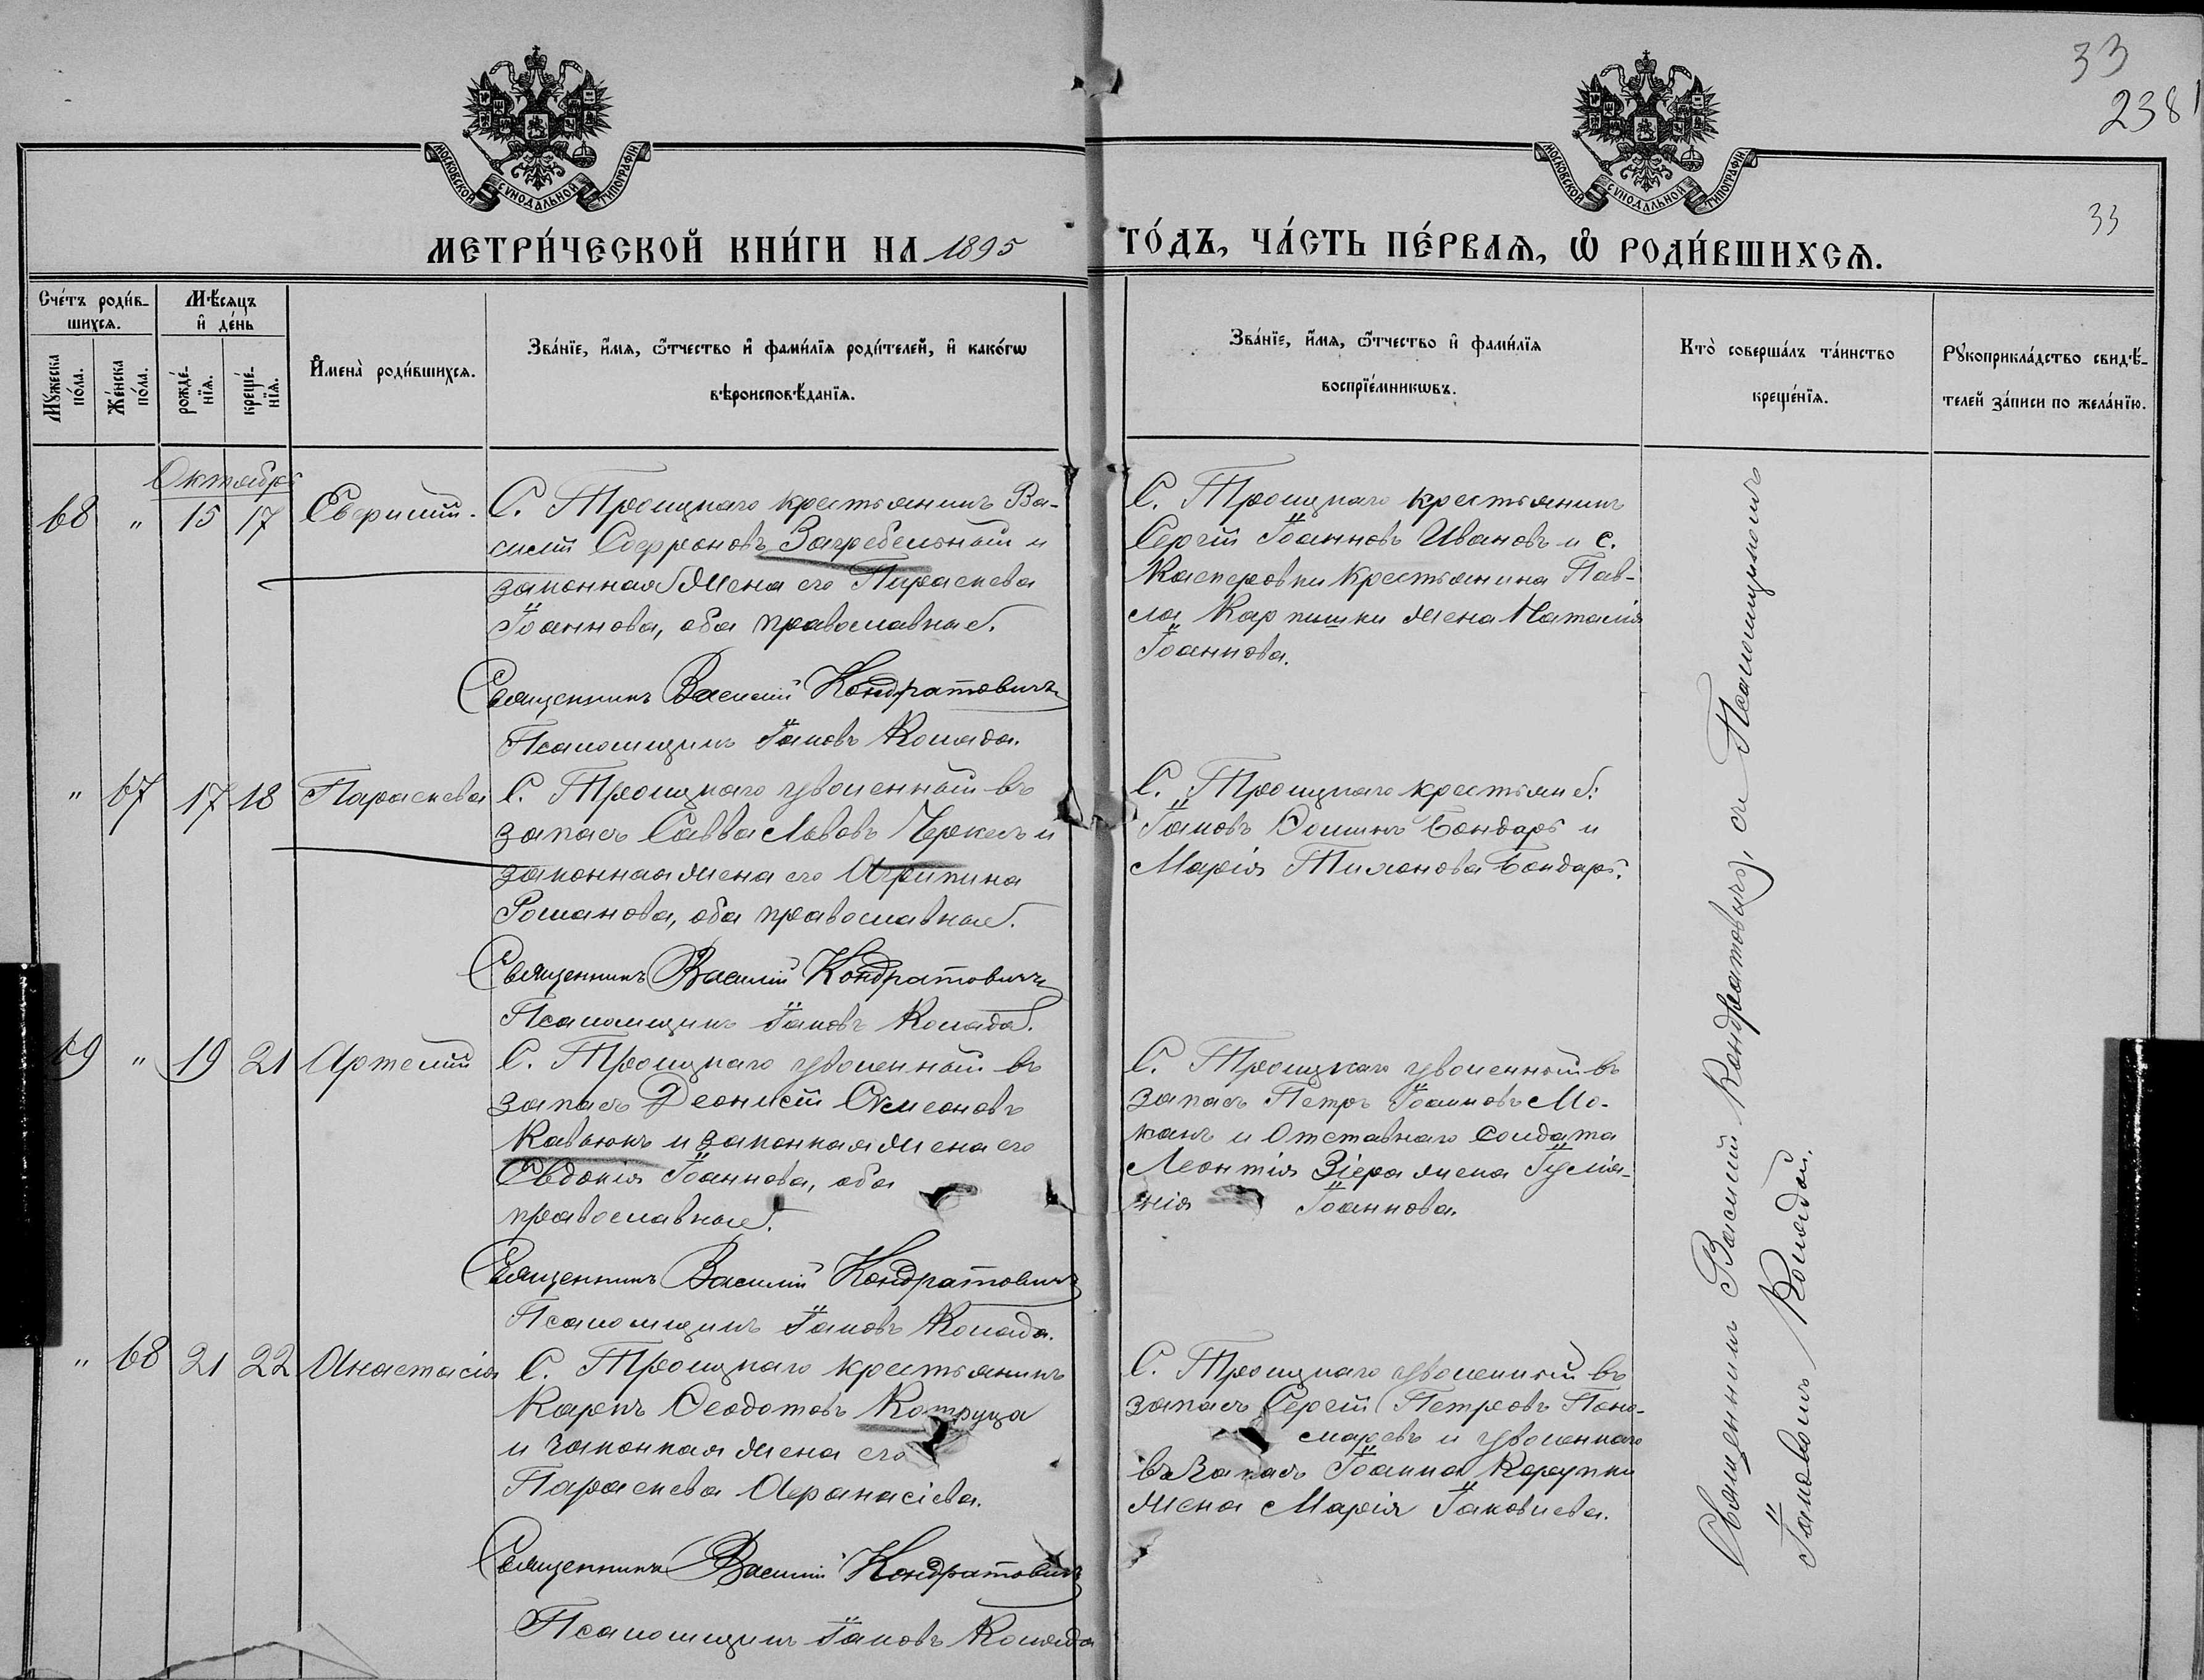 33
2381
33
МОСКОВСКОЙ СѴНОДАЛЬНОЙ ТИПОГРАФІИ
МОСКОВСКОЙ СѴНОДАЛЬНОЙ ТИПОГРАФІИ
МЕТРИ́ЧЕСКОЙ КНИ́ГИ НА 1895 ГО́ДЪ, ЧА́СТЬ ПЕ́РВАѦ, Ѽ РОДИ́ВШИХСѦ.
Сче́тъ роди́в-
шихсѧ.
Мꙋ́жеска по́ла.
Же́нска по́ла.
Мѣ́сѧцъ
и҆ де́нь
рожде́-
нїѧ.
креще́-
нїѧ.
И҆мена̀ роди́вшихсѧ.
Зва́нїе, и҆́мѧ, ѻ҆́тчество и҆ фами́лїѧ роди́телей, и҆ како́гѡ
вѣроисповѣ́данїѧ.
Зва́нїе, и҆́мѧ, ѻ҆́тчество и҆ фами́лїѧ
воспрїе́мникѡвъ.
Кто̀ соверша́лъ та́инство
креще́нїѧ.
Рꙋкоприкла́дство свидѣ́-
телей за́писи по жела́нїю.
Октябрь
68 " 15 17
С. Троицкаго крестьянинъ Ва-
силій Софроновъ Загребельный и
законная жена его Параскева
Іоаннова, оба православные.
Священникъ Василій Кондратовичъ
Псаломщикъ Іаковъ Колада.
С. Троицкаго крестьянинъ
Сергій Іоанновъ Ивановъ и с.
Касперовки крестьянина Пав-
ла Карпишки жена Наталія
Іоаннова.
" 67 17 18 Параскева
С. Троицкаго уволенный въ
запасъ Савва Львовъ Черкесъ и
законная жена его Агрипина
Романова, оба православные.
Священникъ Василій Кондратовичъ
Псаломщикъ Іаковъ Колада.
С. Троицкаго крестьяне:
Іаковъ Ѳоминъ Бондарь и
Марія Тихонова Бондарь.
69 " 19 21 Артемій
С. Троицкаго уволенный въ
запасъ Деонисій Сѵмеоновъ
Кавьюкъ и законная жена его
Евдокія Іоаннова, оба
православные.
Священникъ Василій Кондратовичъ
Псаломщикъ Іаковъ Колада.
С. Троицкаго уволенный въ
запасъ Петръ Іоанновъ Мо-
канъ и отставнаго солдата
Леонтія Зіера жена Іуліа-
нія Іоаннова.
" 68 21 22 Анастасія
С. Троицкаго крестьянинъ
Карпъ Ѳеодотовъ Котруца
и законная жена его
Параскева Аѳанасіева.
Священникъ Василій Кондратовичъ
Псаломщикъ Іаковъ Колада
С. Троицкаго уволенный въ
запасъ Сергій Петровъ Поно-
маревъ и уволеннаго
въ запасъ Іоанна Карупки
жена Марія Іаковлева.
Священникъ Василій Кондратовичъ, съ Псаломщикомъ
Іаковомъ Коладой.